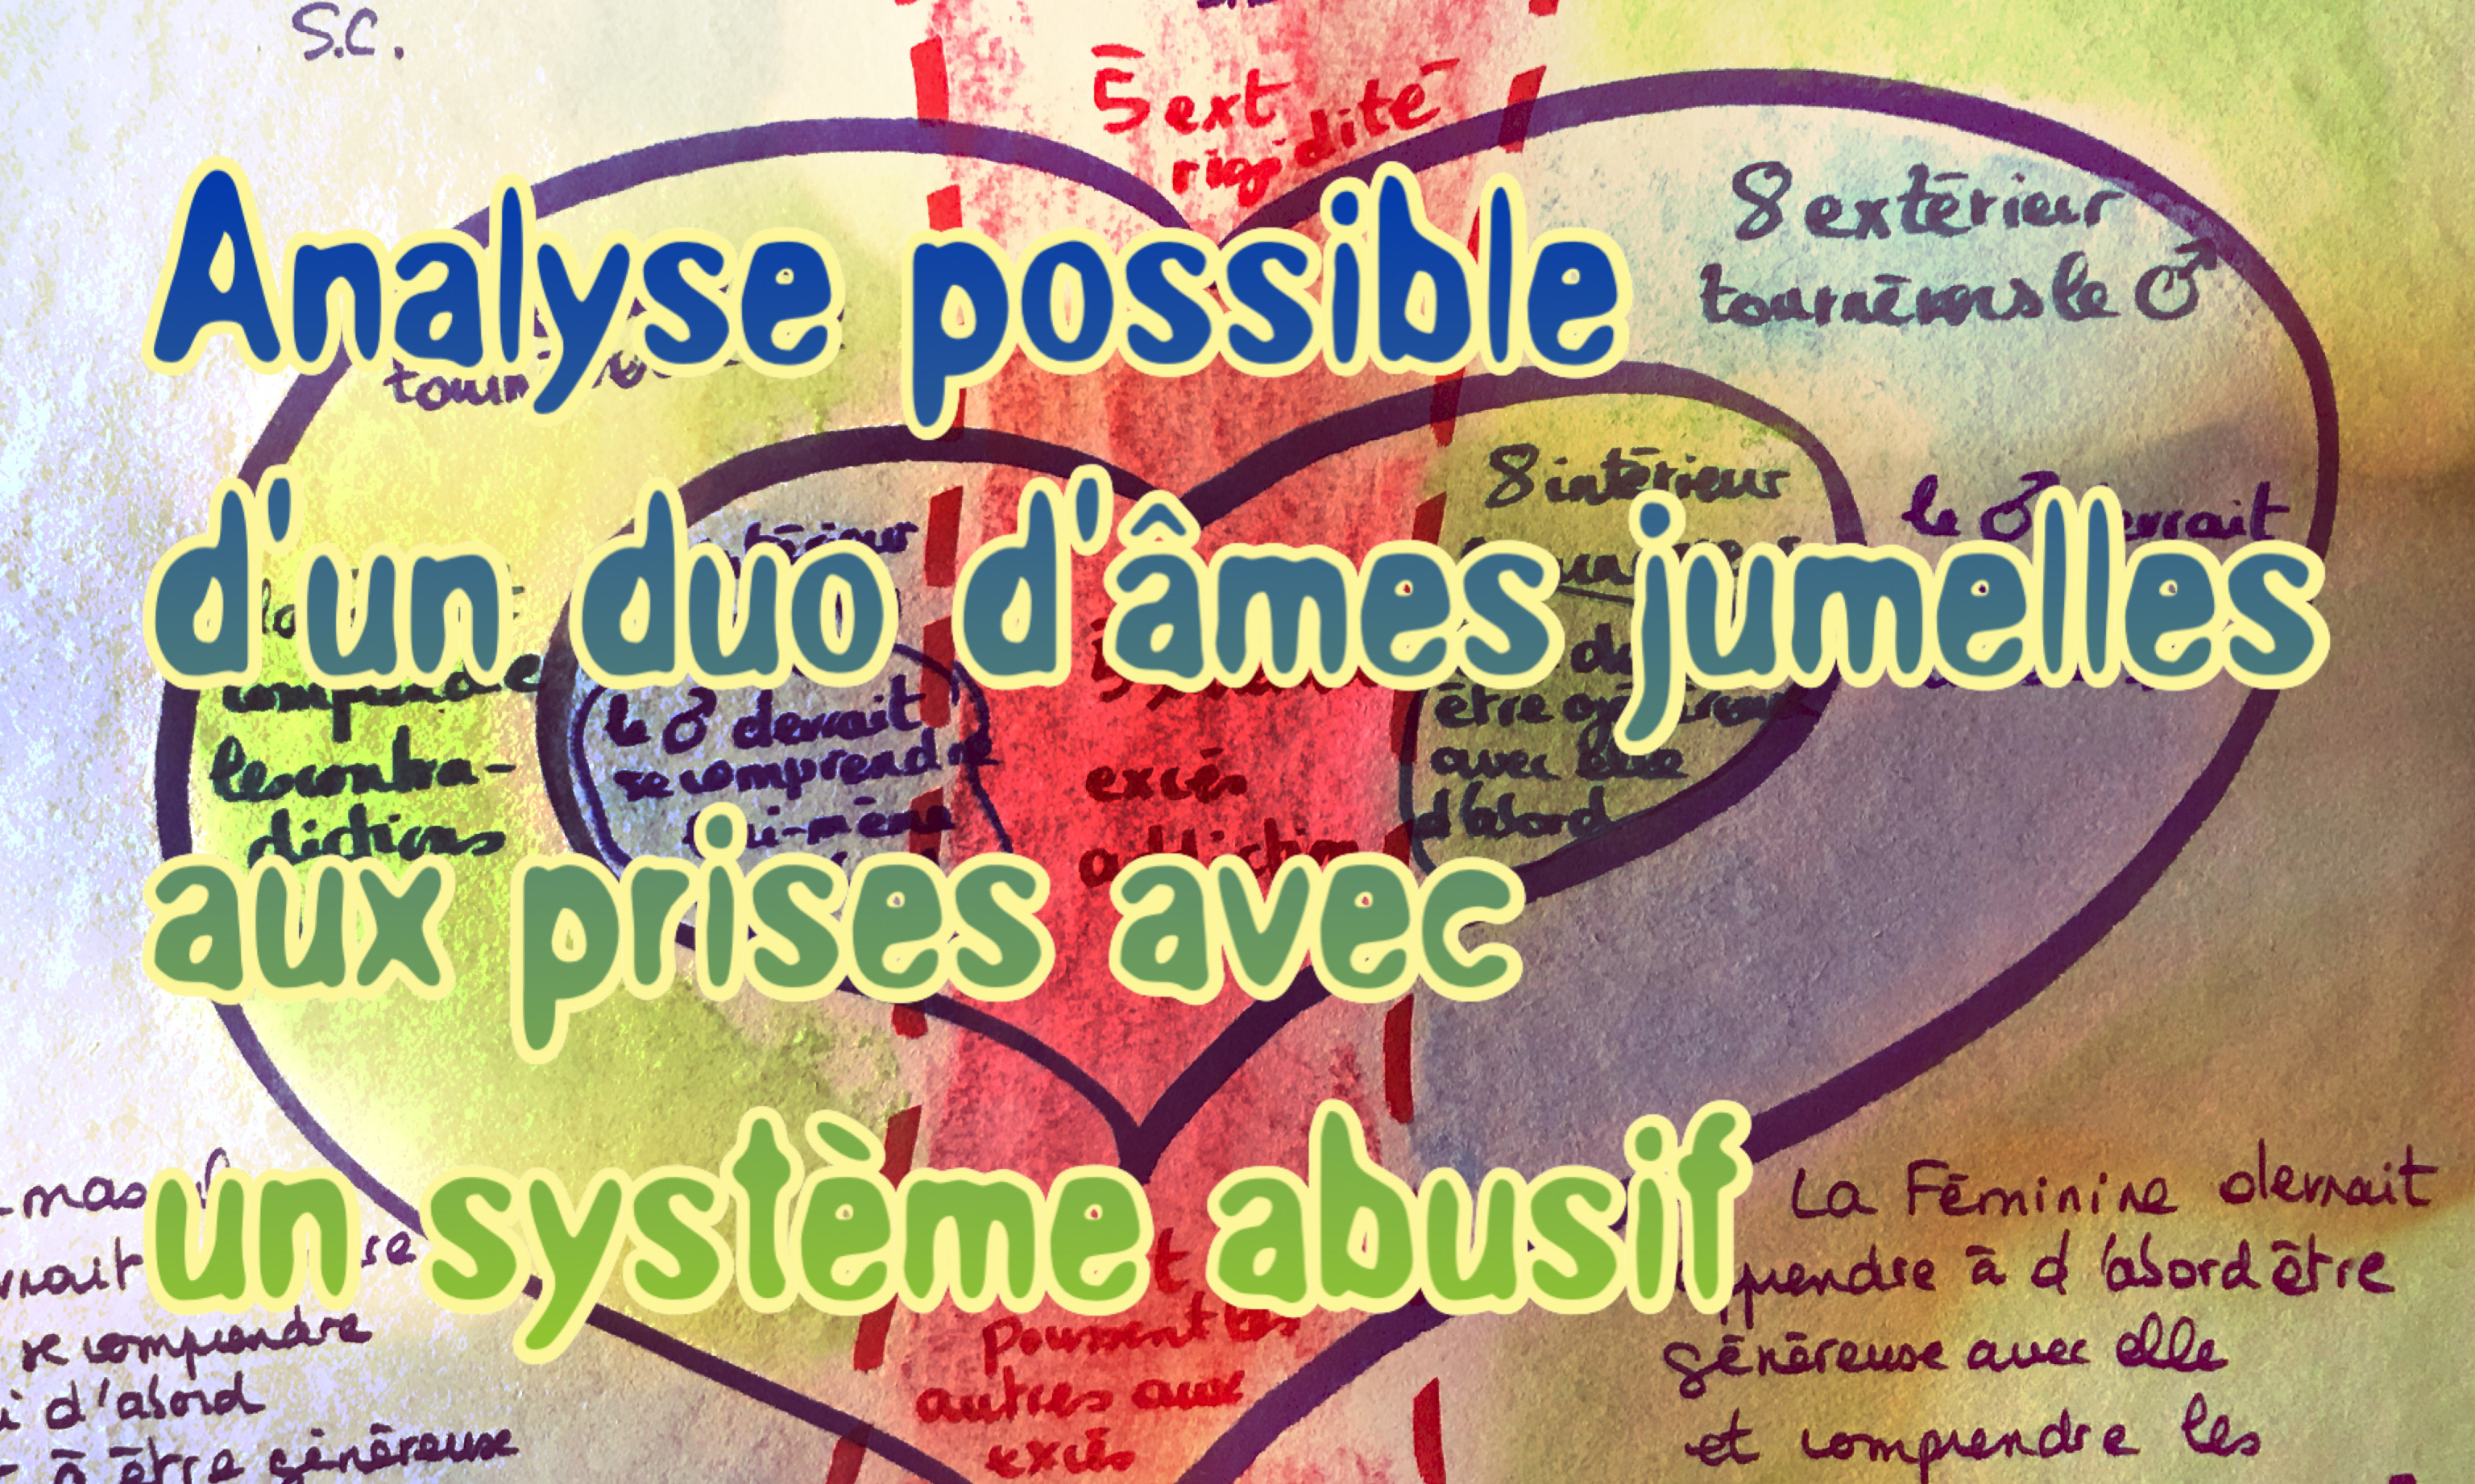 S.C.
5 ext
rigidité
8 extérieur
tourné vers le ♂
Analyse possible
8 intérieur
le ♂
d'un duo d'âmes jumelles
comprendre
les contra-
dictions
le ♂ devrait
se comprendre
lui-même
excès
addiction
être généreux
avec elle
d'abord
aux prises avec
un système abusif
poussent les
autres aux
excès
se comprendre
d'abord
à être généreuse
La Féminine devrait
apprendre à d'abord être
généreuse avec elle
et comprendre les